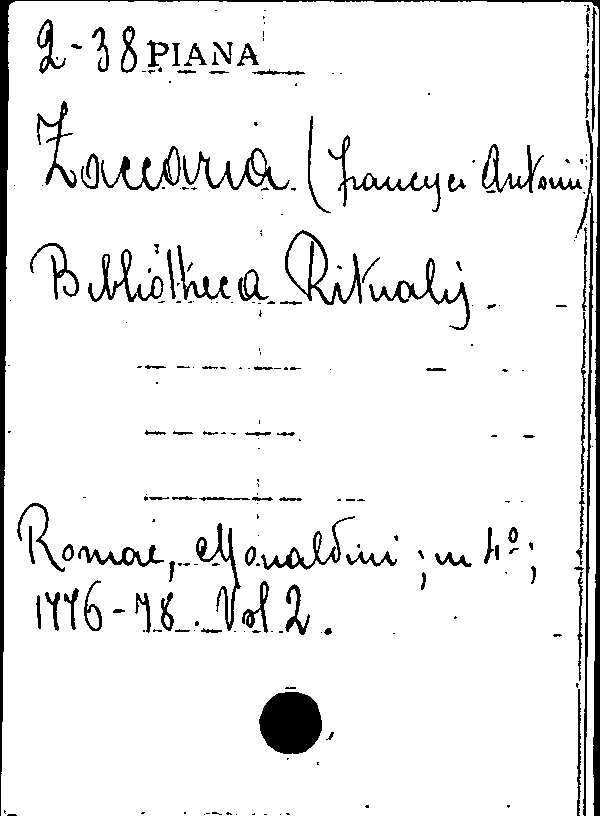 2-38 PIANA
Zaccaria (Francisci Antonii)
Bibliotheca Ritualis.
Romae, Monaldini; in 4º;
1776-78. Vol 2.